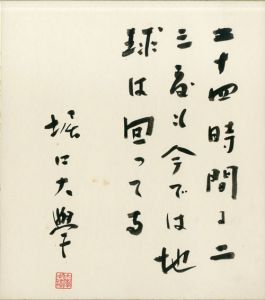 二十四時間に二
三度も今では地
球は回ってる
堀口大學